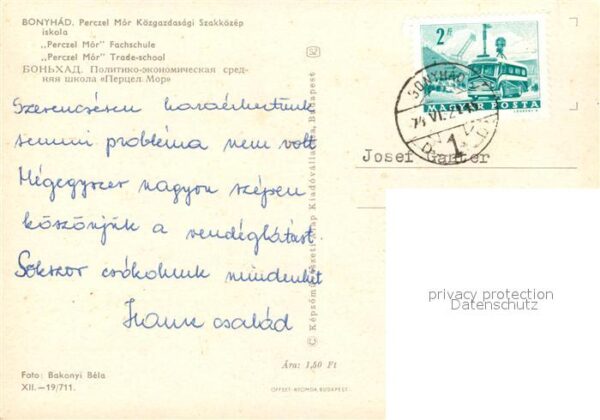 BONYHÁD. Perczel Mór Közgazdasági Szakközép
iskola
„Perczel Mór" Fachschule
„Perczel Mór" Trade-school
БОНЬХАД. Политико-экономическая сред-
няя школа «Перцел Мор»
2 Ft
MAGYAR POSTA
BONYHÁD
74 VI. 21
1
Josef Ganter
Szerencsésen hazaérkeztünk
semmi probléma nem volt
Mégegyszer nagyon szépen
köszönjük a vendéglátást.
Sokszor csókolunk mindenkit
család
© Képzőművészeti Alap Kiadóvállalata, Budapest
privacy protection
Datenschutz
Ára: 1,50 Ft
Foto: Bakonyi Béla
XII.—19/711.
OFFSET-NYOMDA, BUDAPEST